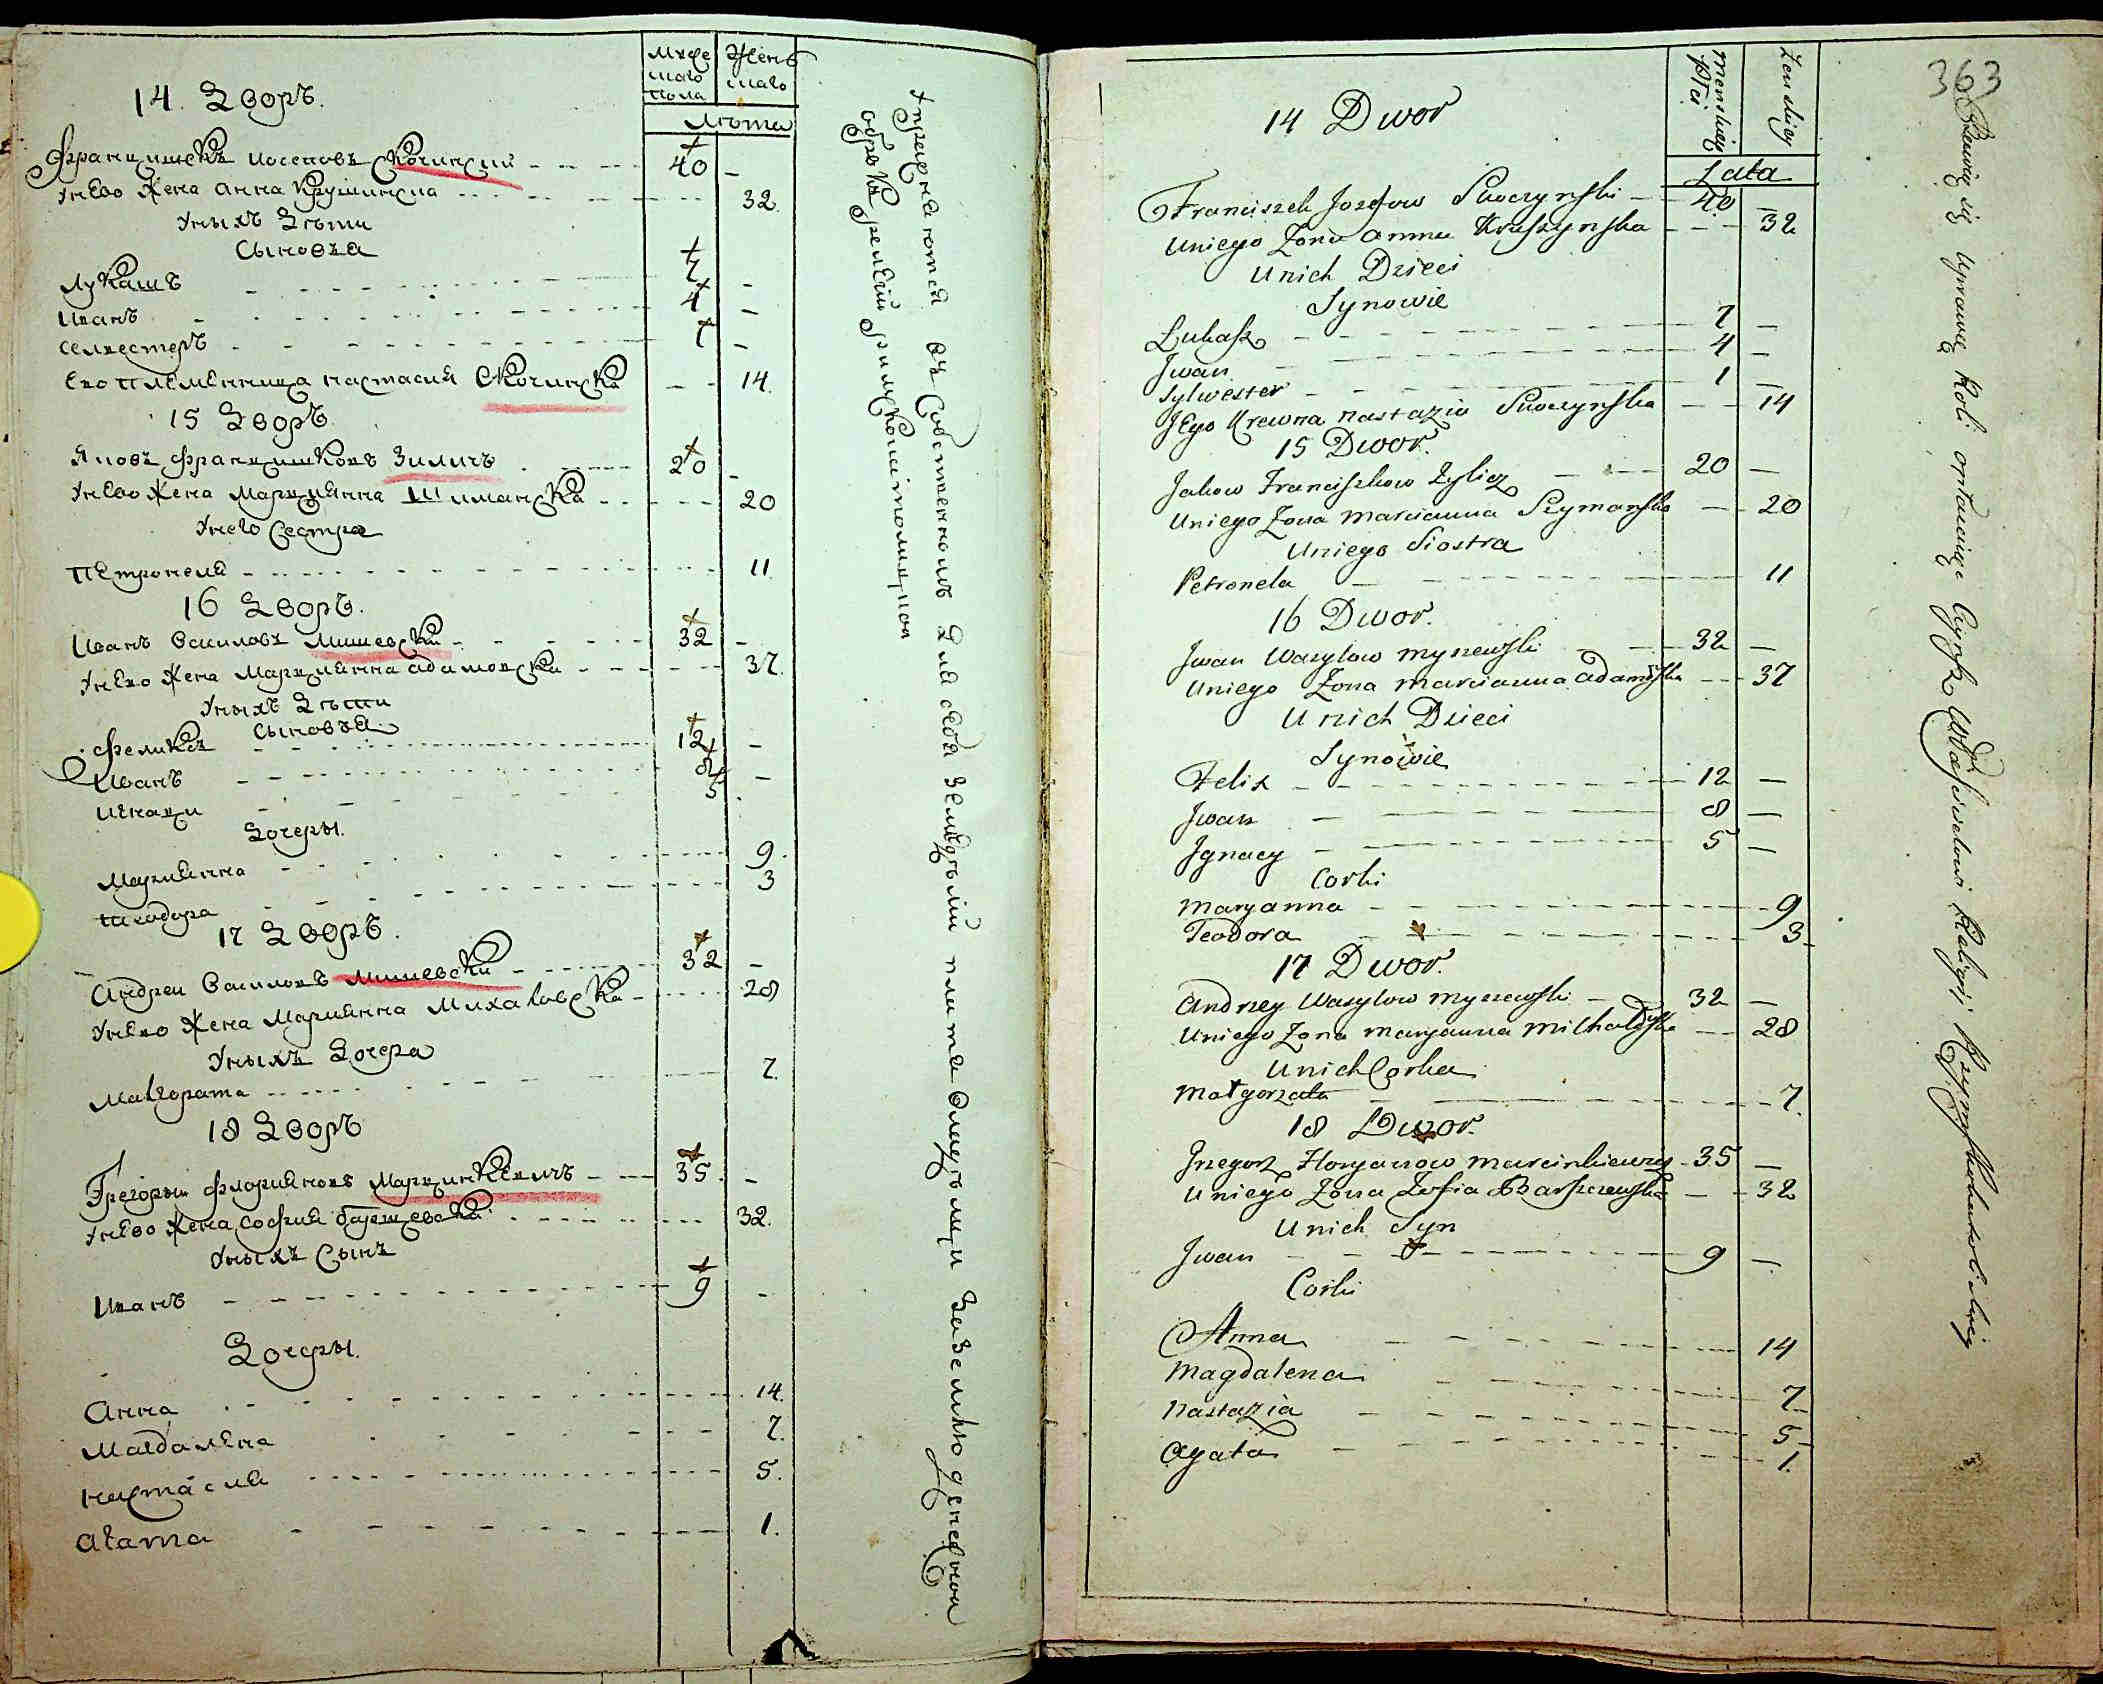 Мужескаго пола
Женскаго
Лѣта
14. Дворъ.
Францишекъ Иосеповъ Скочински 40 -
У него Жена Анна Крушинска 32
У ныхъ Дѣти
Сыновья
Лукашъ 7 -
Иванъ 4 -
Селвестеръ 1 -
Его Племенница Настасия Скочинска 14.
15 Дворъ
Яковъ Францишковъ Зиличъ 20 -
У него Жена Марциянна Шиманска 20
У него Сестра
Петронеля 11.
16 Дворъ.
Иванъ Василовъ Мишевски 32 -
У него Жена Марциянна Адамовска 37.
У ныхъ Дѣти
Сыновья.
Феликсъ 12 -
Иванъ 8 -
Игнаци 5
Дочеры.
Мариянна 9.
Теодора 3
17 Дворъ.
Андреи Василовъ Мишевски 32 -
У него Жена Мариянна Михаловска 28
У ныхъ Дочера
Малгората 7.
18 Дворъ
Грегоры Флорияновъ Марцинкевичъ 35. -
У него Жена София Барщевска 32.
У ныхъ Сынъ
Иванъ 9 -
Дочеры.
Анна 14.
Магдалена 7.
Настасия 5.
Агата 1.
363
męskiey płci
Żenskiey
Lata
14 Dwor
Franciszek Jozefow Skoczynski 40 -
Uniego Żona Anna Kruszynska 32
Unich Dzieci
Synowie
Łukasz 7 -
Jwan 4 -
Sylwester 1 -
Jego Krewna Nastazia Skoczynska 14
15 Dwor.
Jakow Franciszkow Zylicz 20 -
Uniego Żona Marcianna Szymanska 20
Uniego Siostra
Petronela 11
16 Dwor.
Jwan Wasylow Myszewski 32 -
Uniego Żona Marcianna Adamowska 37
Unich Dzieci
Synowie
Felix 12 -
Jwan 8 -
Jgnacy 5 -
Corki
Maryanna 9
Teodora 3
17 Dwor.
Andrzey Wasylow Myszewski 32 -
Uniego Żona Maryanna Michałowska 28
Unich Corka
Małgorzata 7.
18 Dwor.
Grzegorz Floryanow Marcinkiewicz 35 -
Uniego Żona Zofia Barszczewska 32
Unich Syn
Jwan 9 -
Corki
Anna 14
Magdalena 7
Nastazia 5
Agata 1.